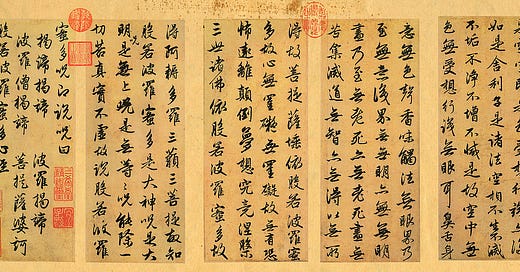 如是舍利子是諸法空相不生不滅
不垢不淨不增不減是故空中無
色無受想行識無眼耳鼻舌身
意無色聲香味觸法無眼界乃
至無意識界無無明亦無無明
盡乃至無老死亦無老死盡無
苦集滅道無智亦無得以無所
得故菩提薩埵依般若波羅蜜
多故心無罣礙無罣礙故無有恐
怖遠離顛倒夢想究竟涅槃
三世諸佛依般若波羅蜜多故
得阿耨多羅三藐三菩提故知
般若波羅蜜多是大神咒是大
明咒是無上咒是無等等咒能除一
切苦真實不虛故說般若波羅
蜜多咒即說咒曰
揭諦揭諦 波羅揭諦
波羅僧揭諦 菩提薩婆訶
般若波羅蜜多心經